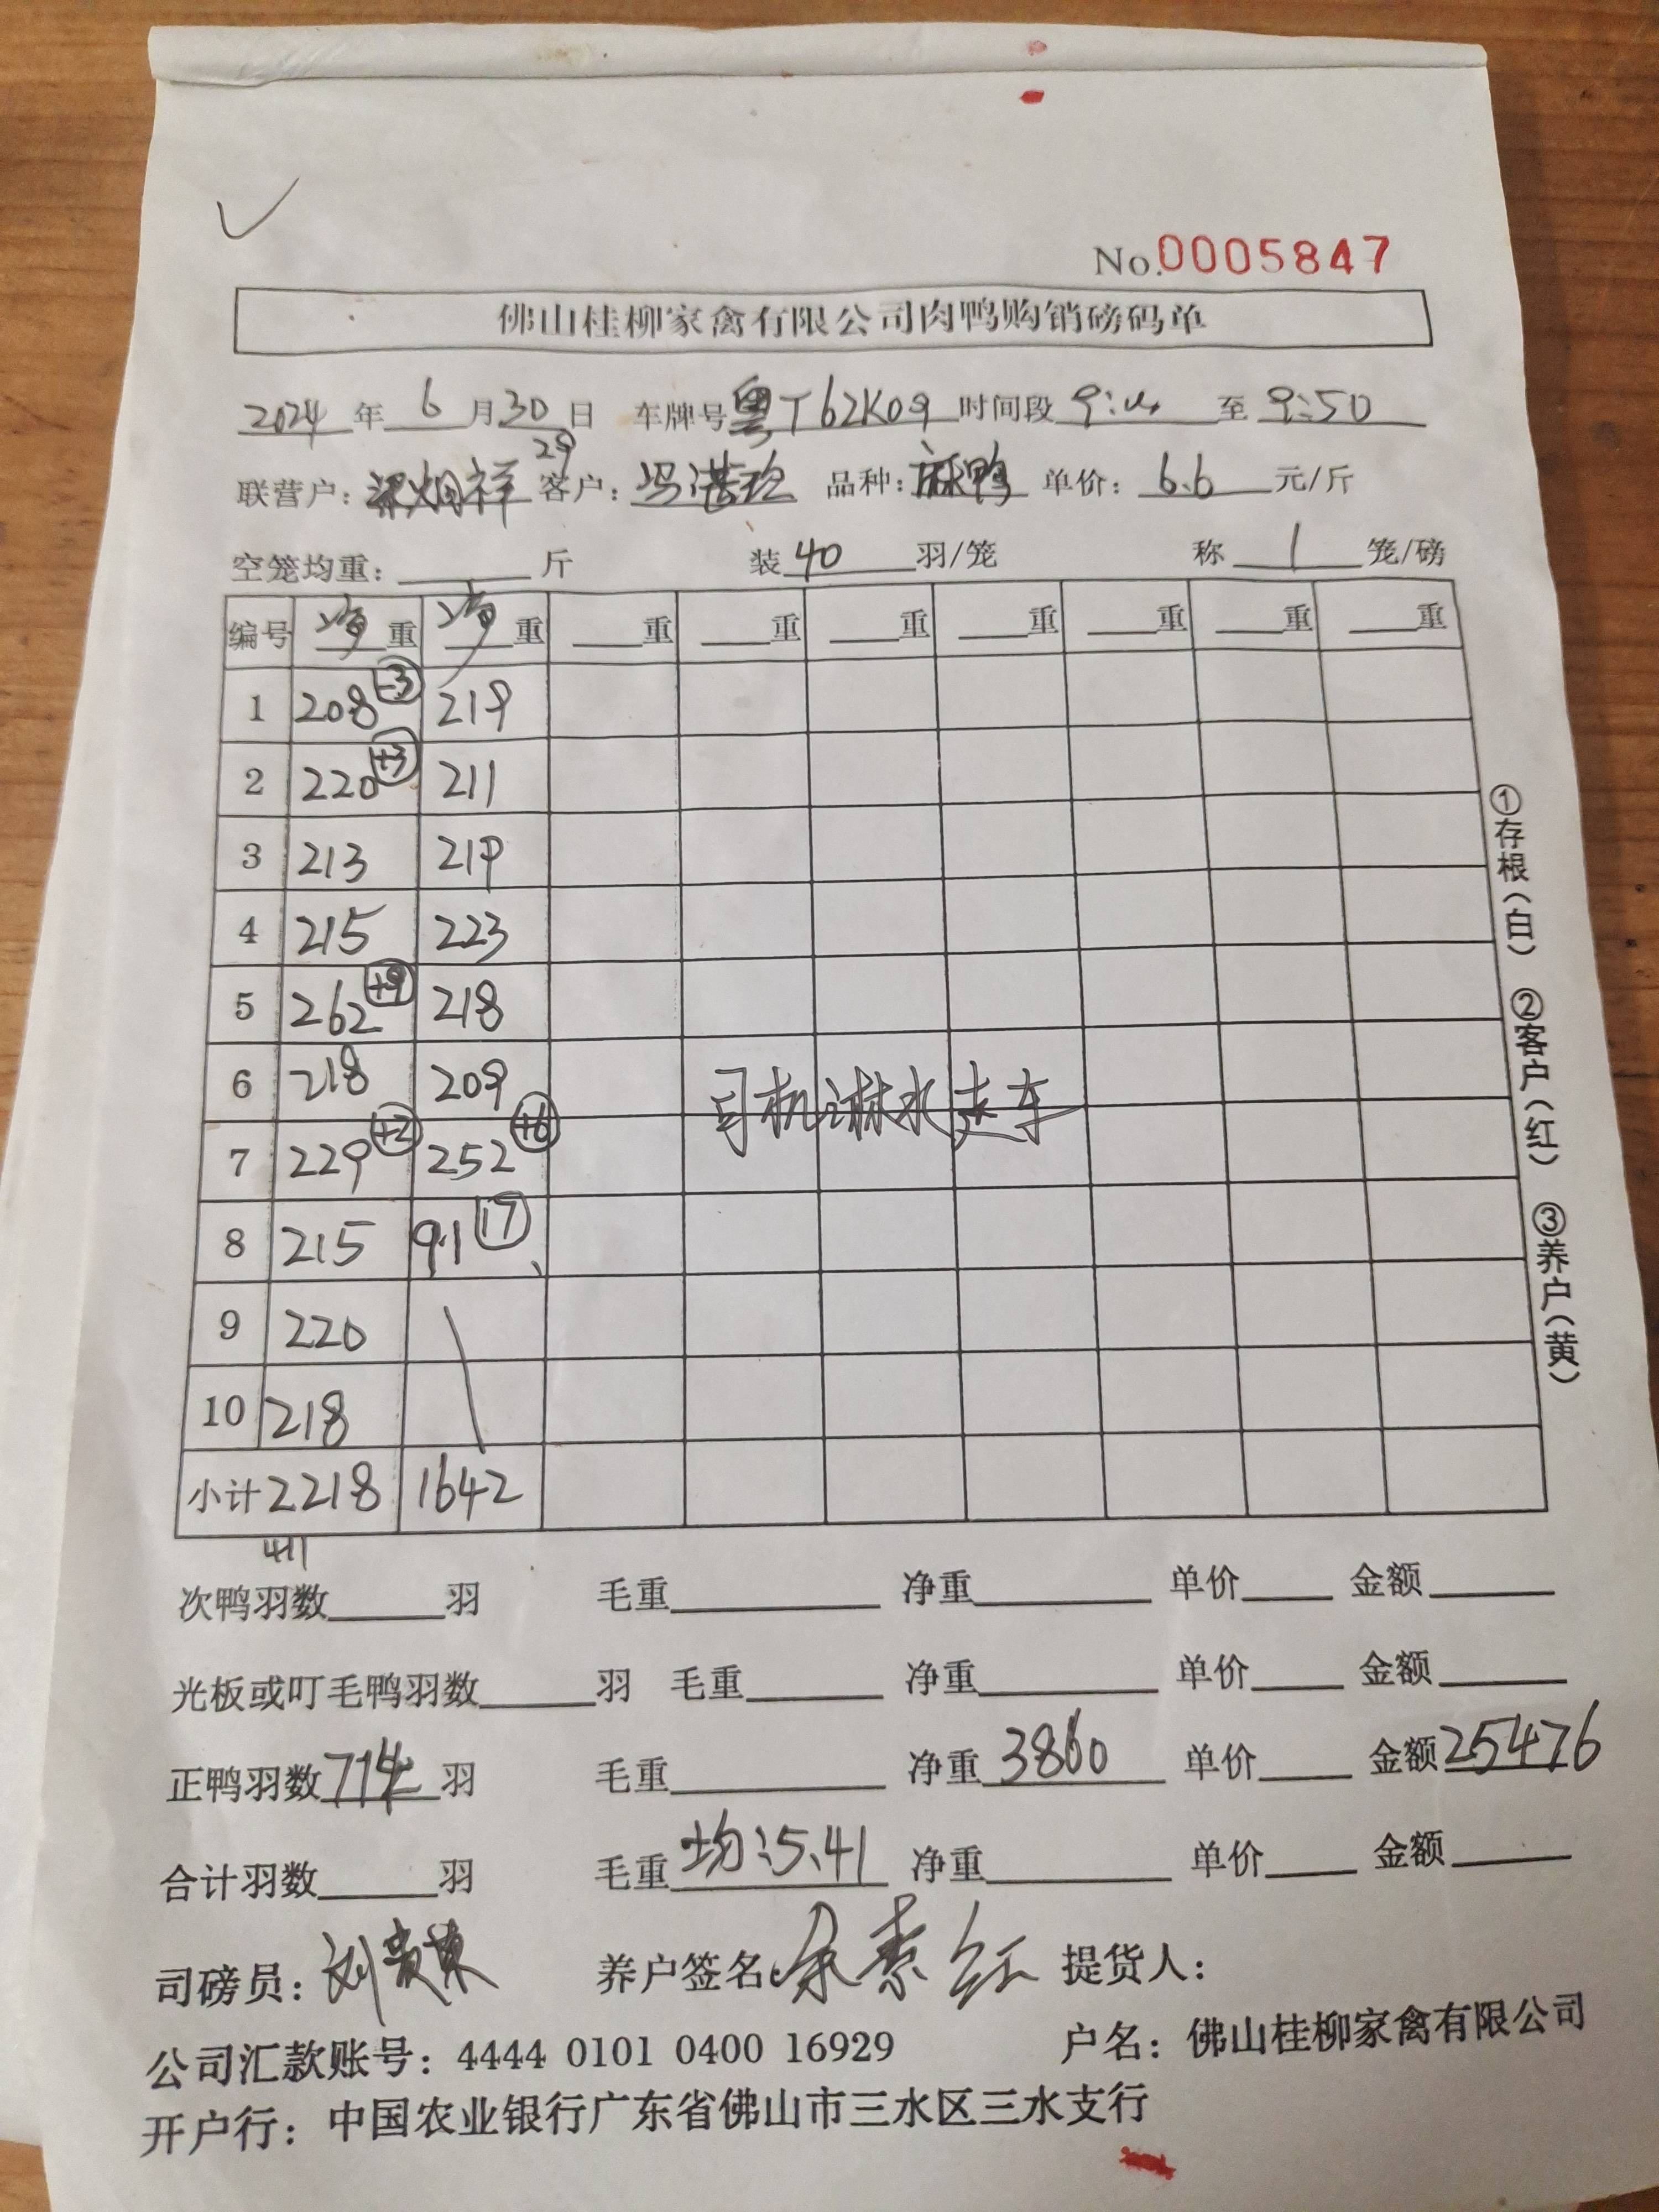 No.0005847
佛山桂柳家禽有限公司肉鸭购销磅码单
2024年6月30日 车牌号粤T62K09时间段 至9:50
29
联营户:梁炳祥 客户:冯湛 品种:麻鸭 单价:6.6元/斤
空笼均重:斤 装40羽/笼 称1笼/磅
编号 净重 净重 重 重 重 重 重 重 重
1 208 -3 219
2 220 +3 211
3 213 219
4 215 223
5 262 +9 218
6 218 209
7 229 +2 252 +6
8 215 91 17
9 220
10 218
小计 2218 1642
司机淋水走车
①存根(白) ②客户(红) ③养户(黄)
411
次鸭羽数羽 毛重 净重 单价 金额
光板或叮毛鸭羽数羽 毛重 净重 单价 金额
正鸭羽数714羽 毛重 净重3860 单价 金额25476
合计羽数羽 毛重均:5.41 净重 单价 金额
司磅员:刘 养户签名:余素红 提货人:
公司汇款账号:4444 0101 0400 16929 户名:佛山桂柳家禽有限公司
开户行:中国农业银行广东省佛山市三水区三水支行